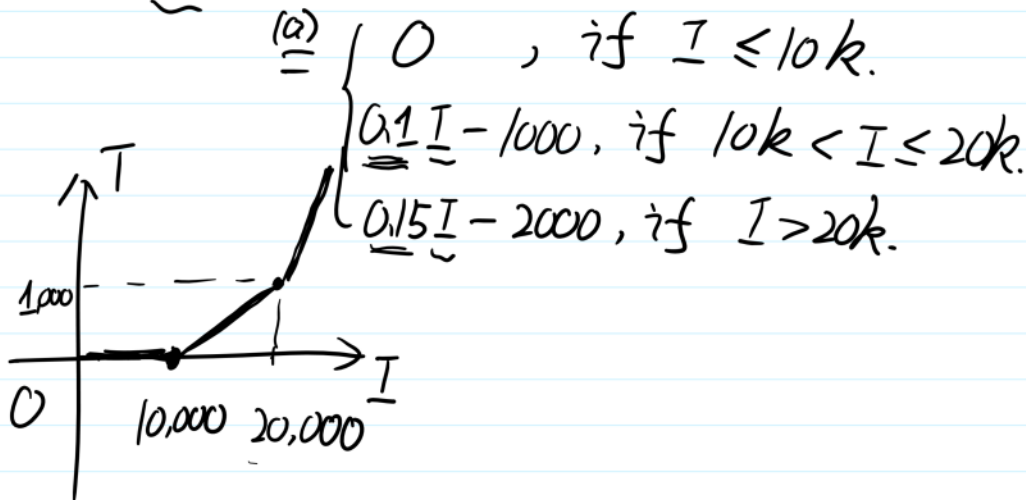 (a) { 0 , if I ≤ 10k.
0.1 I - 1000, if 10k < I ≤ 20k.
T
0.15 I - 2000, if I > 20k.
1,000
I
0
10,000 20,000